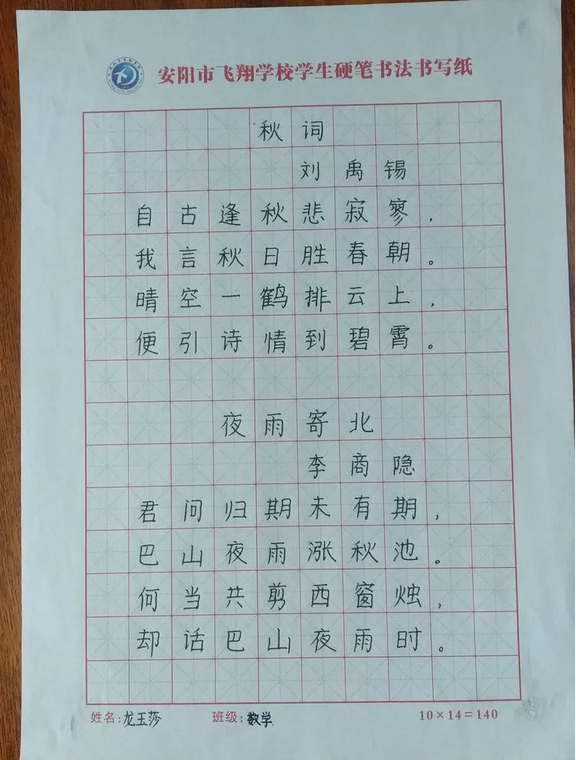 安阳市飞翔学校学生硬笔书法书写纸
秋词
刘禹锡
自古逢秋悲寂寥，
我言秋日胜春朝。
晴空一鹤排云上，
便引诗情到碧霄。
夜雨寄北
李商隐
君问归期未有期，
巴山夜雨涨秋池。
何当共剪西窗烛，
却话巴山夜雨时。
姓名：龙玉莎 班级：数学 10×14=140